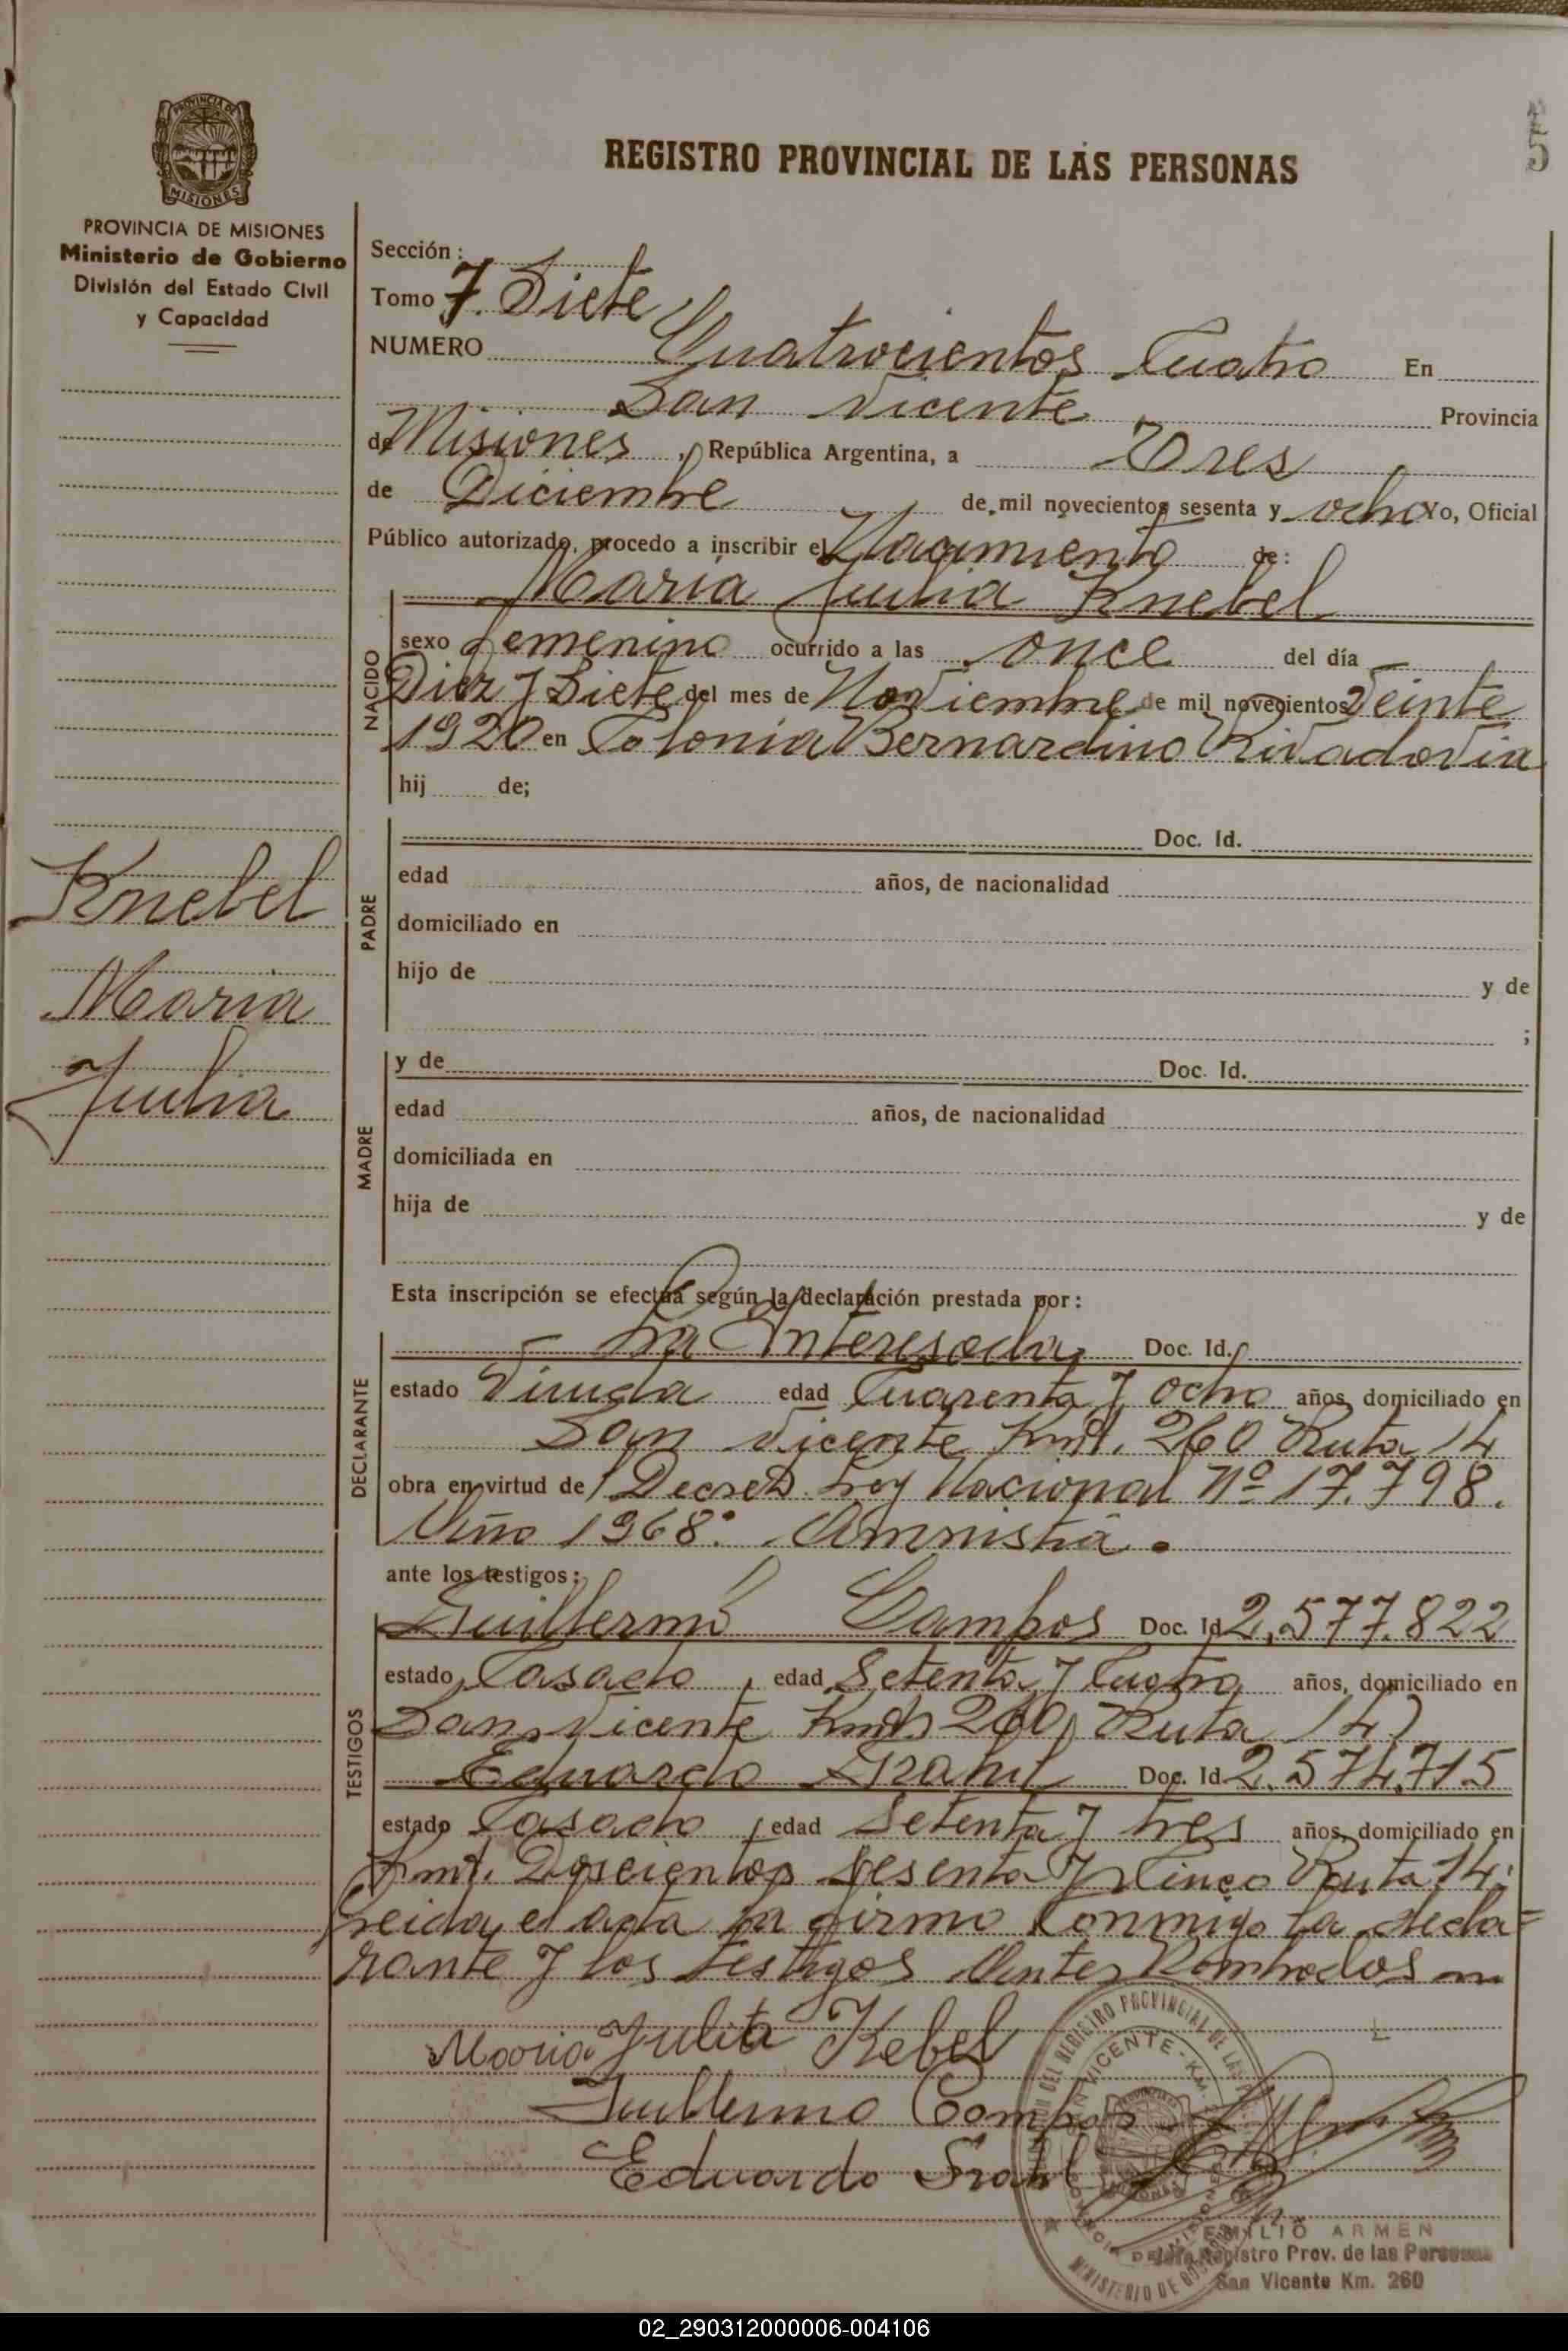 5
REGISTRO PROVINCIAL DE LAS PERSONAS
PROVINCIA DE MISIONES
PROVINCIA DE MISIONES
Ministerio de Gobierno
División del Estado Civil
y Capacidad
Sección :
Tomo 7. Siete
NUMERO Cuatrocientos Cuatro En
San Vicente Provincia
de Misiones, República Argentina, a Tres
de Diciembre de mil novecientos sesenta y ocho Yo, Oficial
Público autorizado, procedo a inscribir el Nacimiento de:
Maria Julia Knebel
NACIDO
sexo femenino ocurrido a las once del día
Diez y Siete del mes de Noviembre de mil novecientos Veinte
1920 en Colonia Bernardino Rivadavia
hij de;
Knebel
Maria
Julia
PADRE
Doc. Id.
edad años, de nacionalidad
domiciliado en
hijo de y de
;
MADRE
y de Doc. Id.
edad años, de nacionalidad
domiciliada en
hija de y de
Esta inscripción se efectúa según la declaración prestada por:
DECLARANTE
La Interesada Doc. Id.
estado Viuda edad Cuarenta y ocho años, domiciliado en
San Vicente Kmt. 260 Ruta 14
obra en virtud de Decreto Ley Nacional Nº 17.798.
Año 1968: Amnistia.
ante los testigos:
TESTIGOS
Guillermo Campos Doc. Id 2,577.822
estado Casado, edad Setenta y Cuatro años, domiciliado en
San Vicente Kmt 260, Ruta 14)
Eduardo Doc. Id 2.574.715
estado Casado, edad Setenta y tres años, domiciliado en
Kmt. Doscientos Sesenta y Cinco Ruta 14:
Leida el acta la firmo Conmigo la decla=
rante y los testigos Antes Nombrados
Maria Julita Kebel
Guillermo Campos
Eduardo
SAN VICENTE - KM.
MINISTERIO DE
EMILIO ARMEN
Jefe Registro Prov. de las Personas
San Vicente Km. 260
02_290312000006-004106